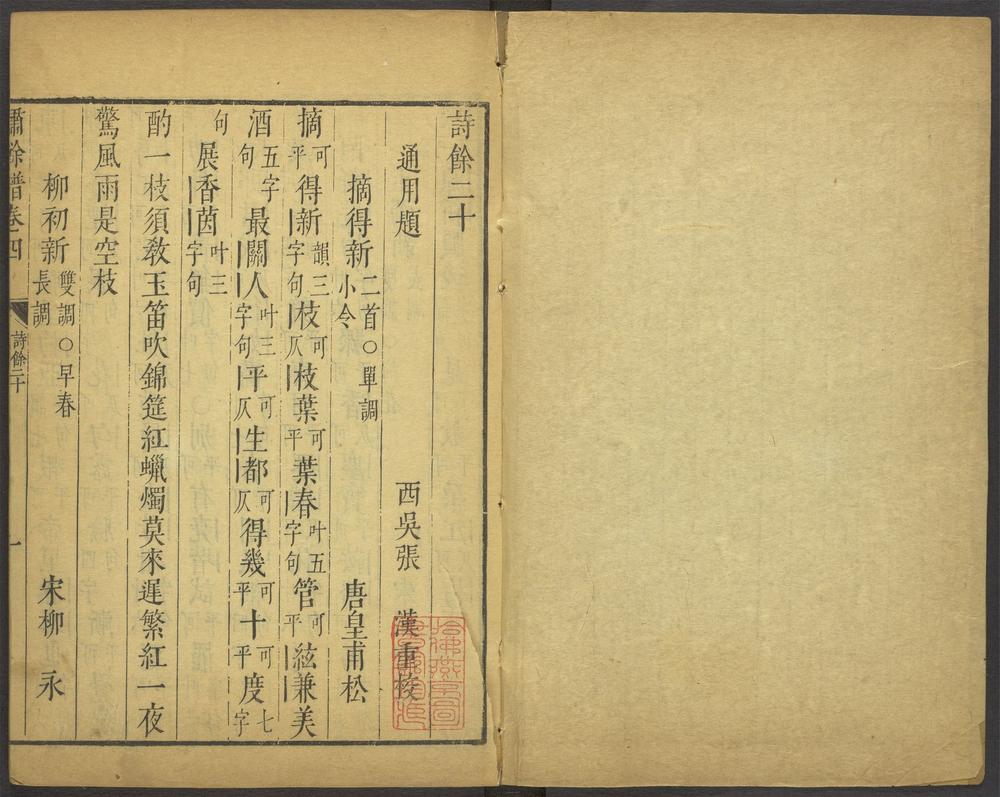 詩餘二十
通用題 西吳張 漢重校
摘得新 二首○單調小令 唐皇甫松
摘可平得新韻三字句枝可仄枝葉可平葉春叶五字句管可平絃兼美
酒五字句最關人叶三字句平可仄生都可仄得幾可平十可平度七字
句展香茵叶三字句
酌一枝須教玉笛吹錦筵紅蠟燭莫來遲繁紅一夜
驚風雨是空枝
柳初新 雙調○早春長調 宋柳 永
嘯餘譜卷四 詩餘二十 一
哈佛燕京